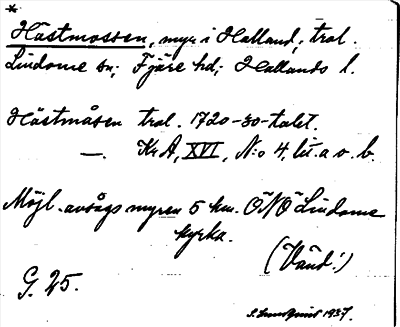 *
Hästmossen, myr i Halland, trol.
Lindome sn; Fjäre hd; Hallands l.
Hästmåsen trol. 1720-30-talet.
—. Kr A, XVI, N:o 4, lit. a o. b.
Möjl. avsågs myren 5 km. ÖNÖ Lindome
kyrka.
(Vänd!)
G. 25.
S. Lundquist 1937.